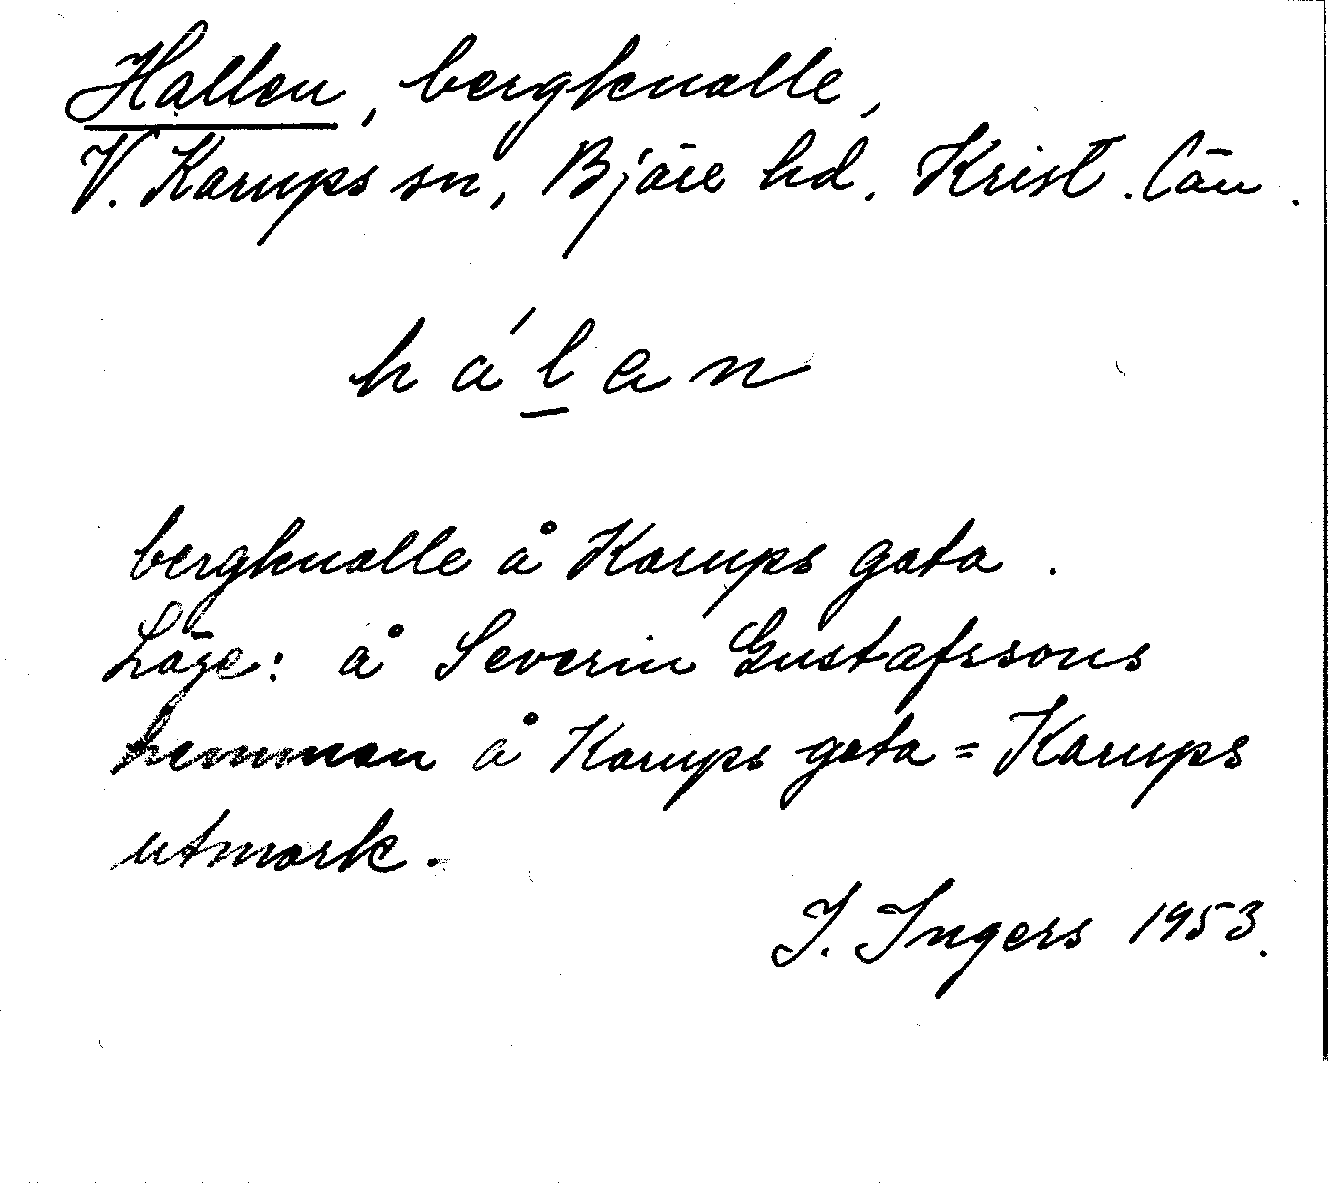 Hallen, bergknalle,
V. Karups sn, Bjäre hd. Krist. län.
hál̲an
bergknalle å Karups gata.
Läge: å Severin Gustafssons
hemman å Karups gata = Karups
utmark.
I. Ingers 1953.